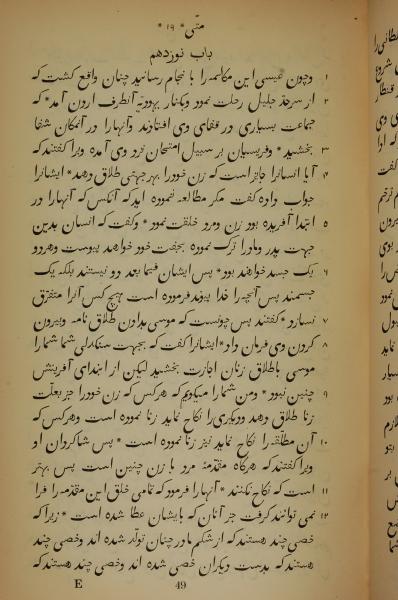 متّی * ۱۹ *
باب نوزدهم
۱ وچون عیسی این مکالمه را با نجام رسانید چنان واقع گشت که
۲ از سرحدّ جلیل رحلت نمود وبکنار یهودیّه آنطرف اردن آمد * که
جماعت بسیاری در قفای وی افتادند وآنها را در آنمکان شفا
۳ بخشید * وفریسیان بر سبیل امتحان نزد وی آمده ویرا گفتند که
۴ آیا انسانرا جایز است که زن خودرا بهر جهتی طلاق دهد * ایشانرا
جواب داده گفت مگر مطالعه ننموده اید که آنکس که آنها را در
۵ ابتدا آفریده بود زن ومرد خلقت نمود * وگفت که انسان بدین
جهت پدر ومادر را ترک نموده بجفت خود خواهد پیوست وهر دو
۶ یک جسد خواهند بود * پس ایشان فیما بعد دو نیستند بلکه یک
جسمند پس آنچه را خدا پیوند فرموده است هیچ کس آنرا متفرّق
۷ نسازد * گفتند پس چونست که موسی بدادن طلاق نامه وبیرون
۸ کردن وی فرمان داد * ایشانرا گفت که بجهت سنکدلی شما شما را
موسی باطلاق زنان اجازت بخشید لیکن از ابتدای آفرینش
۹ چنین نبود * ومن شما را میکویم که هر کس که زن خودرا جز بعلّت
زنا طلاق دهد ودیکری را نکاح نماید زنا نموده است وهر کس که
۱۰ آن مطلّقه را نکاح نماید نیز زنا نموده است * پس شاکردان او
ویرا گفتند که هرکاه مقدّمهٔ مرد با زن چنین است پس بهتر
۱۱ است که نکاح نکنند * آنها را فرمود که تمامی خلق این مقدّمه را فرا
۱۲ نمی توانند گرفت جز آنان که بایشان عطا شده است * زیرا که
خصی چند هستند که از شکم مادر چنان تولّد شده اند وخصی چند
هستند که بدست دیکران خصی شده اند وخصی چند هستند که
E 49